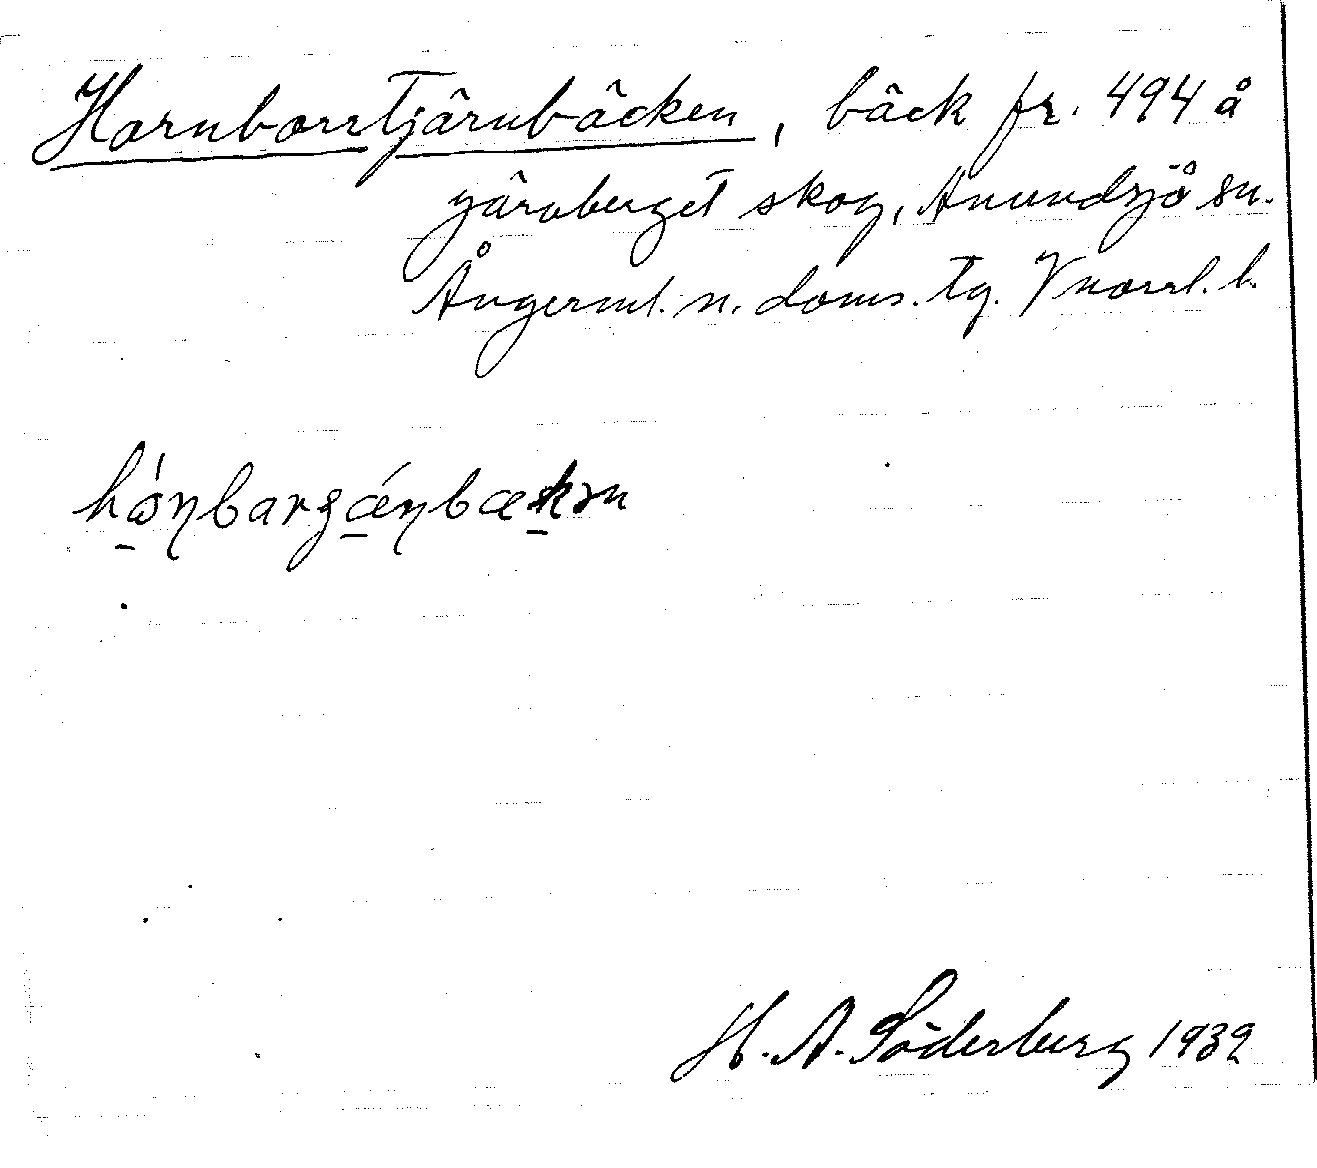 Hornborrtjärnbäcken, bäck fr. 494 å
gärnberget skog, Anundsjö sn.
Ångerml. n. doms. tg. Vnorrl. l.
hɷ́ɳbarʂǽɳbækən
H. A. Söderberg 1932